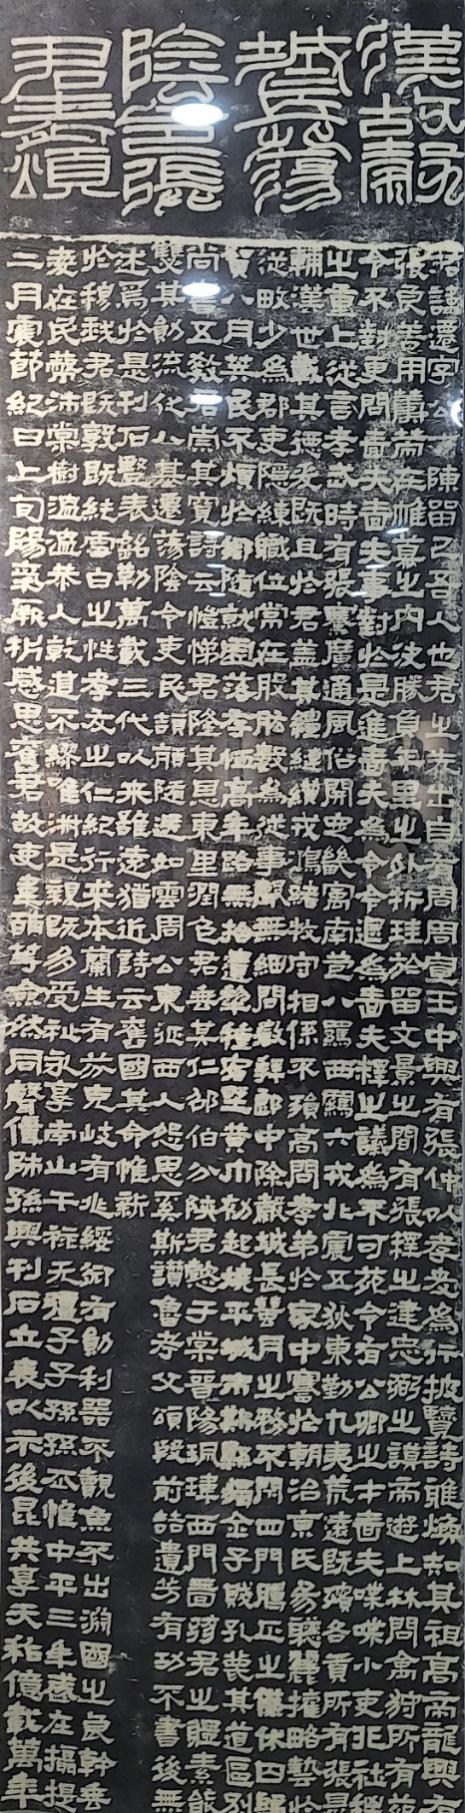 漢故穀
城長蕩
陰令張
君表頌
君諱遷字公方陳留己吾人也君之先出自有周周宣王中興有張仲以孝友為行披覽詩雅煥知其祖高帝龍興有
張良善用籌策在帷幕之內決勝負千里之外析珪於留文景之間有張釋之建忠弼之謨帝遊上林問禽狩所有苑
令不對更問嗇夫嗇夫事對於是進嗇夫為令令退為嗇夫釋之議為不可苑令有公卿之才嗇夫喋喋小吏非社稷
之重上從言孝武時有張騫廣通風俗開定畿寓南苞八蠻西羈六戎北震五狄東勤九夷荒遠既殯各貢所有張是
輔漢世載其德爰既且於君蓋其繵縺纘戎鴻緒牧守相係不殞高問孝弟於家中謇於朝治京氏易聰麗權略藝於
從畋少為郡吏隱練職位常在股肱數為從事聲無細聞徵拜郎中除穀城長蠶月之務不閉四門臘正之祭休囚歸
賀八月筭民不煩於鄉隨就虛落存恤高年路無拾遺犁種宿野黃巾初起燒平城市斯縣獨全子賤孔蔑其道區別
尚書五教君崇其寬詩云愷悌君隆其恩東里潤色君垂其仁邵伯分陝君懿于棠晉陽珮瑋西門帶弦君之體素能
雙其勛流化八基遷蕩陰令吏民頡頏隨送如雲周公東征西人怨思奚斯讚魯考父頌殷前喆遺芳有功不書後無
述焉於是刊石豎表銘勒萬載三代以來雖遠猶近詩云舊國其命惟新
於穆我君既敦既純雪白之性孝友之仁紀行來本蘭生有芬克岐有兆綏御有勛利器不覿魚不出淵國之良幹垂
愛在民蔽沛棠樹溫溫恭人乾道不繆唯淑是親既多受祉永享南山干祿无疆子子孫孫惟中平三年歲在攝提
二月震節紀日上旬陽氣厥析感思舊君故吏韋萌等僉然同聲賃師孫興刊石立表以示後昆共享天祚億載萬年